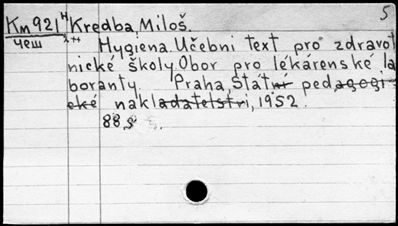 5
Км 921 Kredba, Miloš.
чеш
Hygiena. Učebni text pro zdravot
nické školy. Obor pro lékárenské la
boranty. Praha, Státní pedagogi
cké nakladatelstvi, 1952.
88 s.